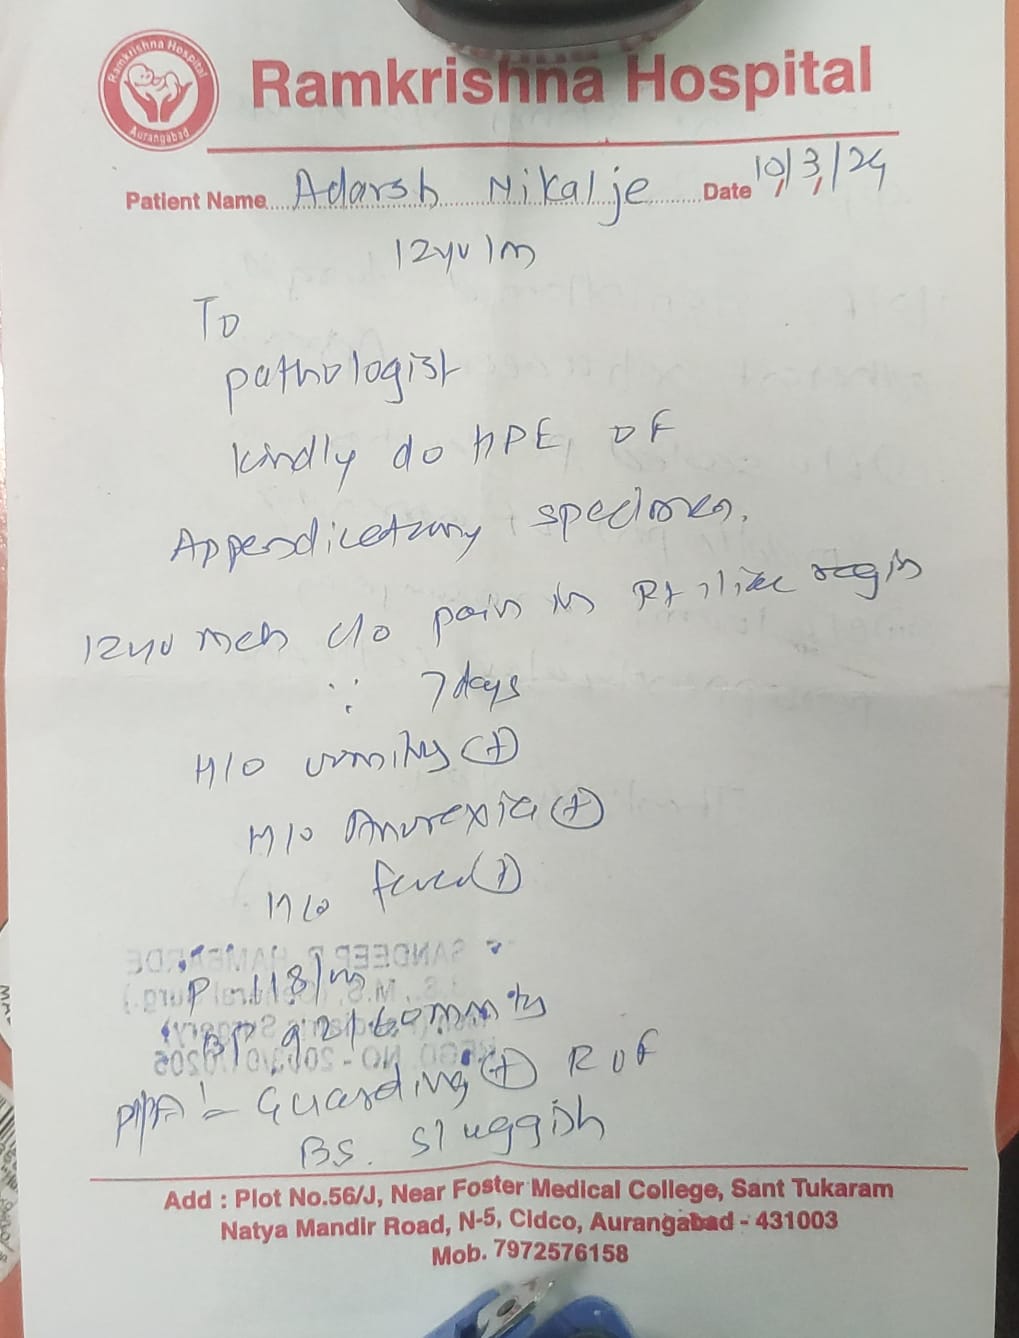 Ramkrishna Hospital
Aurangabad
Ramkrishna Hospital
Patient Name Adarsh Nikalje Date 10/3/24
12yr/m
To
pathologist
kindly do HPE of
Appendicetomy specimen.
12yr meh c/o pain in Rt iliac region
∵ 7 days
H/O vomiting (+)
H/O Anorexia (+)
H/O fever (+)
P - 118/m
BP 92/60mmHg
P/A :- Guarding (+) RIF
BS. sluggish
Add : Plot No.56/J, Near Foster Medical College, Sant Tukaram
Natya Mandir Road, N-5, Cidco, Aurangabad - 431003
Mob. 7972576158